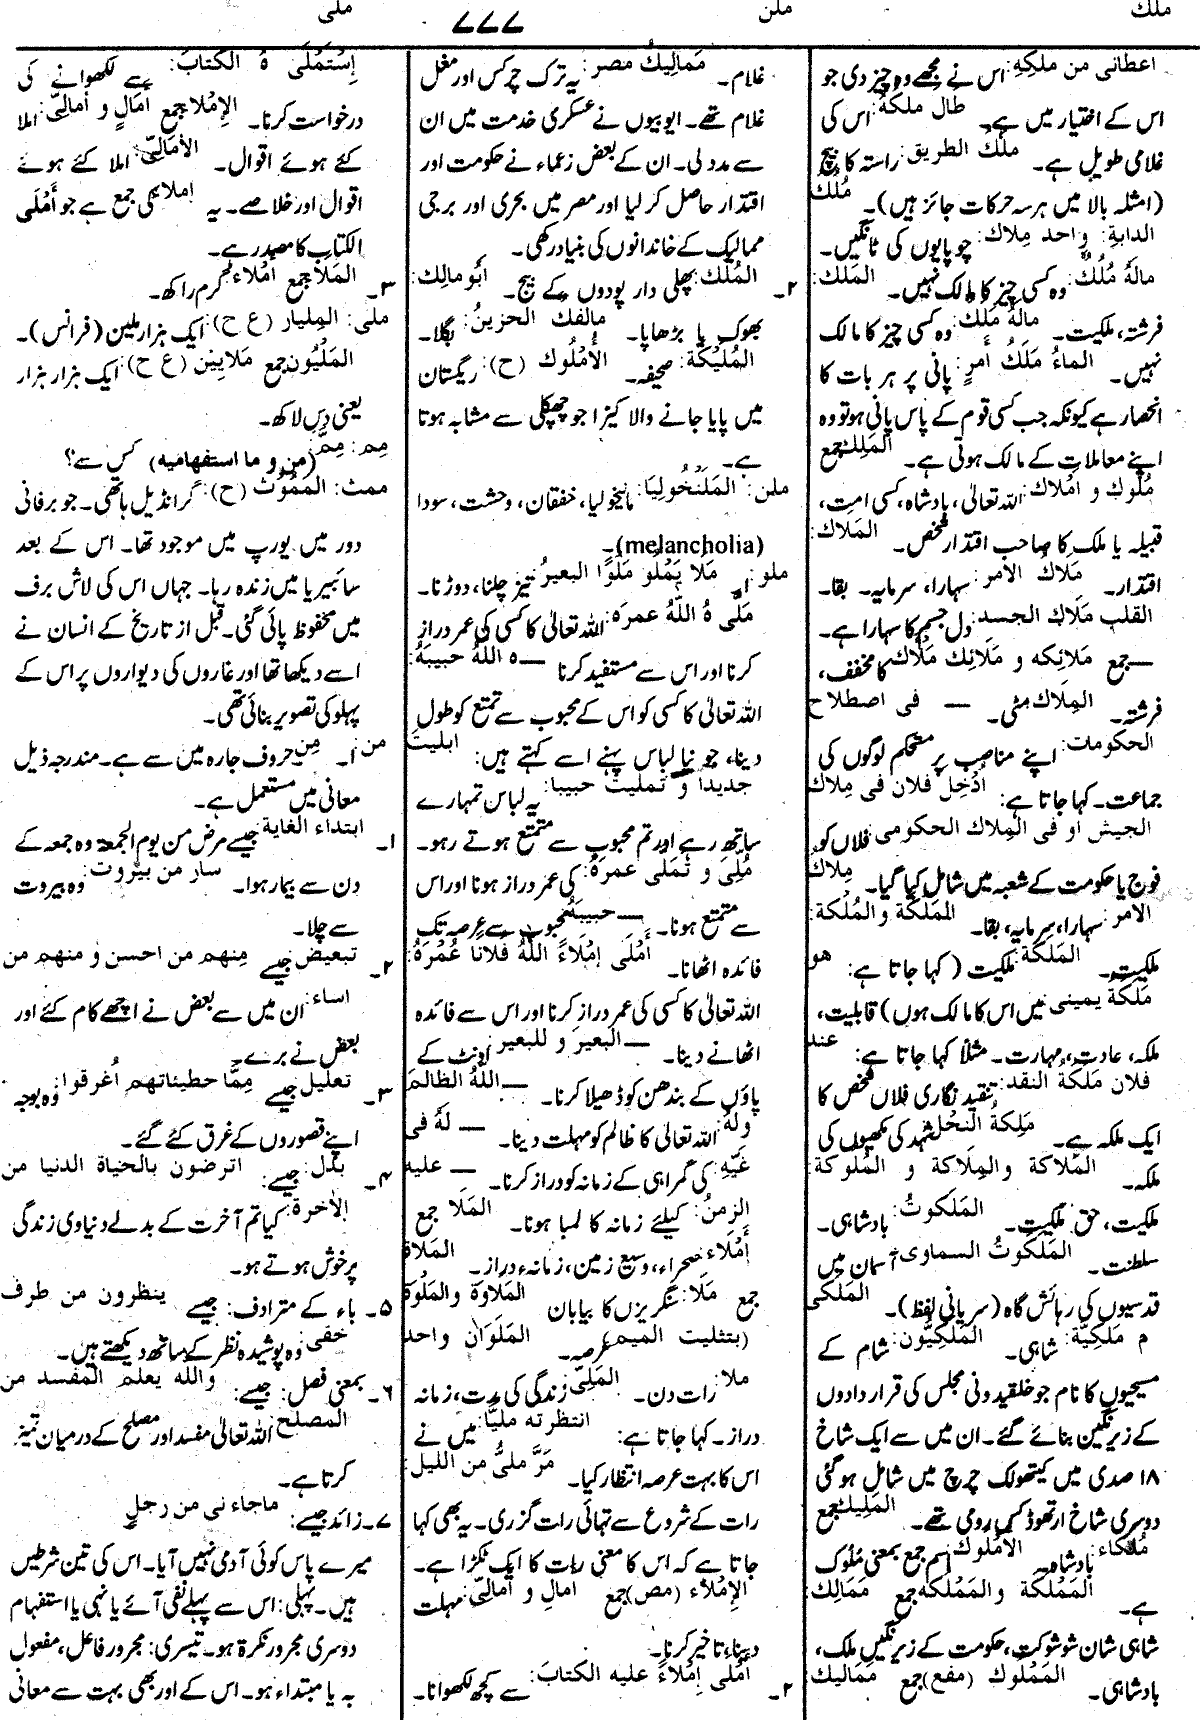 ملك
ملن
ملى
٧٧٧
اعطانى من ملكِهِ: اس نے مجھے وہ چیز دی جو
اس کے اختیار میں ہے۔ طال ملكَهُ: اس کی
غلامی طویل ہے۔ ملك الطريق: راستہ کا بیچ
(امثلہ بالا میں ہر سہ حرکات جائز ہیں)۔ مُلُك
الدابة: واحد مِلاك: چوپایوں کی ٹانگیں۔
مالَهُ مُلُك: وہ کسی چیز کا مالک نہیں۔ المَلَك:
فرشتہ، ملکیت۔ مالَهُ مَلَك: وہ کسی چیز کا مالک
نہیں۔ الماءُ مَلَكُ أَمرٍ: پانی پر ہر بات کا
انحصار ہے کیونکہ جب کسی قوم کے پاس پانی ہو تو وہ
اپنے معاملات کے مالک ہوتی ہے۔ المَلِك جمع
مُلُوك و امْلاك: اللہ تعالیٰ، بادشاہ، کسی امت،
قبیلہ یا ملک کا صاحب اقتدار شخص۔ المَلاك:
اقتدار۔ مِلاكُ الامر: سہارا، سرمایہ۔ بقا۔
القلب مَلاك الجسد: دل جسم کا سہارا ہے۔
—جمع مَلائكه و مَلائك مَلأك کا مخفف،
فرشتہ۔ المِلاك: مٹی۔ — فی اصطلاح
الحكومات: اپنے مناصب پر متحکم لوگوں کی
جماعت۔ کہا جاتا ہے: اُدْخِل فلان فی مِلاك
الجيش او فی المِلاك الحكومی: فلاں کو
فوج یا حکومت کے شعبہ میں شامل کیا گیا۔ مِلاك
الامر: سہارا، سرمایہ، بقا۔ المَلَكَة والمُلْكَة:
ملکیت۔ المَلَكَة: ملکیت (کہا جاتا ہے: هو
مَلَكَة يمينى: میں اس کا مالک ہوں) قابلیت،
ملکہ، عادت، مہارت۔ مثلاً کہا جاتا ہے: عند
فلان مَلَكَةُ النقد: تنقید نگاری فلاں شخص کا
ایک ملکہ ہے۔ مَلِكَةُ النحل: شہد کی مکھیوں کی
ملکہ۔ المَلاكة والمِلاكة و المُلوكة:
ملکیت، حق ملکیت۔ المَلَكوتُ: بادشاہی۔
سلطنت۔ المَلَكوتُ السماوى: آسمان میں
قدسیوں کی رہائش گاہ (سریانی لفظ)۔ المَلَكى
م مَلَكيّة: شاہی۔ المَلَكيُّون: شام کے
مسیحیوں کا نام جو خلقیدونی مجلس کی قراردادوں
کے زیر نگین بنائے گئے۔ ان میں سے ایک شاخ
۱۸ صدی میں کیتھولک چرچ میں شامل ہو گئی
دوسری شاخ ارتھوڈکس رومی تھے۔ المَلِيك جمع
مُلَكاء: بادشاہ۔ الأملوك: اسم جمع بمعنی مُلُوك
ہے۔ المَمْلَكة والمَمْلُكة جمع مَمَالِك:
شاہی شان شوکت، حکومت کے زیر نگیں ملک،
بادشاہی۔ المَمْلُوك (مفع) جمع مَمَاليك
غلام۔ مَمَاليكُ مصر: یہ ترک چرکس اور مغل
غلام تھے۔ ایوبیوں نے عسکری خدمت میں ان
سے مدد لی۔ ان کے بعض زعماء نے حکومت اور
اقتدار حاصل کر لیا اور مصر میں بحری اور برجی
ممالیک کے خاندانوں کی بنیاد رکھی۔
۲۔ المُلك: پھلی دار پودوں کے بیج۔ ابُو مالِك:
بھوک یا بڑھاپا۔ مالِك الحزينُ: بگلا۔
المُلَيْكَة: صحیفہ۔ الأُمْلُوك (ح): ریگستان
میں پایا جانے والا کیڑا جو چھپکلی سے مشابہ ہوتا
ہے۔
ملن: المَلَنْخُولِيَا: مالیخولیا، خفقان، وحشت، سودا
(melancholia)۔
ملو: ۱۔ مَلا يَمْلُو مَلْوًا البعيرُ: تیز چلنا، دوڑنا۔
مَلّى هُ اللّهُ عمرَه: اللہ تعالیٰ کا کسی کی عمر دراز
کرنا اور اس سے مستفید کرنا —ه اللّهُ حبيبَهُ:
اللہ تعالیٰ کا کسی کو اس کے محبوب سے تمتع کو طول
دینا، جو نیا لباس پہنے اسے کہتے ہیں: ابليتَ
جديداً و تمليتَ حبيبا: یہ لباس تمہارے
ساتھ رہے اور تم محبوب سے متمتع ہوتے رہو۔
مُلِّىَ و تَمَلّى عمرَهُ: کی عمر دراز ہونا اور اس
سے متمتع ہونا۔ —حبيبَهُ: محبوب سے عرصہ تک
فائدہ اٹھانا۔ أَمْلَى إمْلَاءً اللّهُ فلانا عُمْرَهُ:
اللہ تعالیٰ کا کسی کی عمر دراز کرنا اور اس سے فائدہ
اٹھانے دینا۔ —البعيرَ و للبعير: اونٹ کے
پاؤں کے بندھن کو ڈھیلا کرنا۔ —اللّهُ الظالمَ
ولهُ: اللہ تعالیٰ کا ظالم کو مہلت دینا۔ — لهُ فی
غَيِّه: کی گمراہی کے زمانہ کو دراز کرنا۔ — عليه
الزمنُ: کیلئے زمانہ کا لمبا ہونا۔ المَلا جمع
أمْلاء: صحراء، وسیع زمین، زمانۂ دراز۔ المَلاة
جمع مَلا: سنگریزں کا بیابان المَلاوَة والمَلوَة
(بتثليث الميم): عرصہ۔ المَلَوَان واحد
ملا: رات دن۔ المَلِيّ: زندگی کی مدت، زمانہ
دراز۔ کہا جاتا ہے: انتظرته مليًّا: میں نے
اس کا بہت عرصہ انتظار کیا۔ مَرَّ ملىٌّ من الليل:
رات کے شروع سے تہائی رات گزری۔ یہ بھی کہا
جاتا ہے کہ اس کا معنی رات کا ایک ٹکڑا ہے۔
الإمْلاء (مص) جمع امالٍ و امالىّ: مہلت
دینا، تاخیر کرنا۔
۲۔ أملى إملاءً عليه الكتابَ: سے کچھ لکھوانا۔
إسْتَمْلَى هُ الكتابَ: سے لکھوانے کی
درخواست کرنا۔ الإمْلا جمع امَالٍ و امالىّ: املا
کئے ہوئے اقوال۔ الأمالىّ: املا کئے ہوئے
اقوال اور خلاصے۔ یہ إملاء کی جمع ہے جو أَمْلَى
الكتاب کا مصدر ہے۔
۳۔ المَلا جمع امْلاء: گرم راکھ۔
ملی: المِليار (ع ح): ایک ہزار ملین (فرانس)۔
المَلْيُون جمع مَلايين (ع ح): ایک ہزار ہزار
یعنی دس لاکھ۔
مِم: مِمَّ (من و ما استفهاميه) کس سے؟
ممث: المَمُّوث (ح): گرانڈیل ہاتھی۔ جو برفانی
دور میں یورپ میں موجود تھا۔ اس کے بعد
سائبیریا میں زندہ رہا۔ جہاں اس کی لاش برف
میں محفوظ پائی گئی۔ قبل از تاریخ کے انسان نے
اسے دیکھا تھا اور غاروں کی دیواروں پر اس کے
پہلو کی تصویر بنائی تھی۔
من: ۱۔ مِن: حروف جارہ میں سے ہے۔ مندرجہ ذیل
معانی میں مستعمل ہے۔
۱۔ ابتداء الغاية جیسے مرض من يوم الجمعة وہ جمعہ کے
دن سے بیمار ہوا۔ سار من بيروت: وہ بیروت
سے چلا۔
۲۔ تبعيض جیسے مِنهم من احسن و منهم من
اساء: ان میں سے بعض نے اچھے کام کئے اور
بعض نے برے۔
۳۔ تعلیل جیسے مِمَّا خطيئاتهم أُغرقوا: وہ بوجہ
اپنے قصوروں کے غرق کئے گئے۔
۴۔ بدل: جیسے: اترضون بالحياة الدنيا من
الأخرة: کیا تم آخرت کے بدلے دنیاوی زندگی
پر خوش ہوتے ہو۔
۵۔ باء کے مترادف: جیسے ينظرون من طرف
خفى: وہ پوشیدہ نظر کے ساتھ دیکھتے ہیں۔
۶۔ بمعنی فصل: جیسے: والله يعلم المفسد من
المصلح: اللہ تعالیٰ مفسد اور مصلح کے درمیان تمیز
کرتا ہے۔
۷۔ زائد جیسے: ماجاء نى من رجلٍ
میرے پاس کوئی آدمی نہیں آیا۔ اس کی تین شرطیں
ہیں۔ پہلی: اس سے پہلے نفی آئے یا نہی یا استفہام
دوسری مجرور نکرۃ ہو۔ تیسری: مجرور فاعل، مفعول
بہ یا مبتداء ہو۔ اس کے اور بھی بہت سے معانی